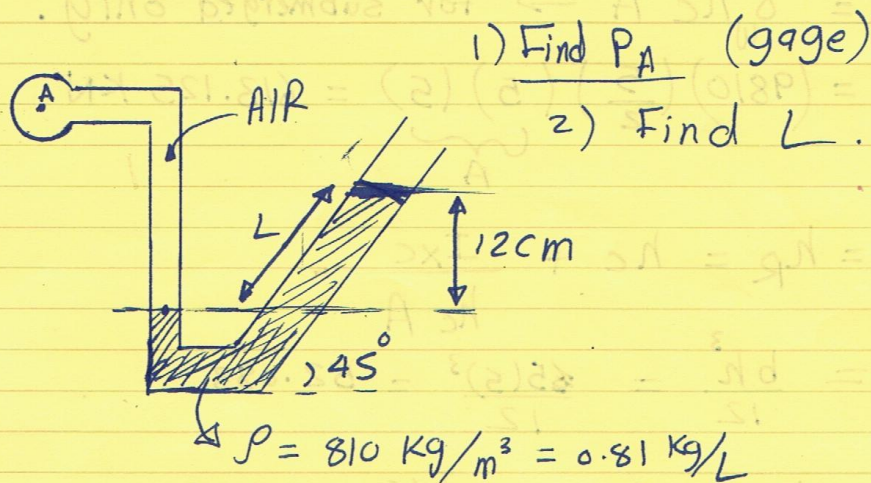 1) Find PA (gage)
2) Find L.
A
AIR
L
12cm
45°
ρ = 810 Kg/m³ = 0.81 Kg/L